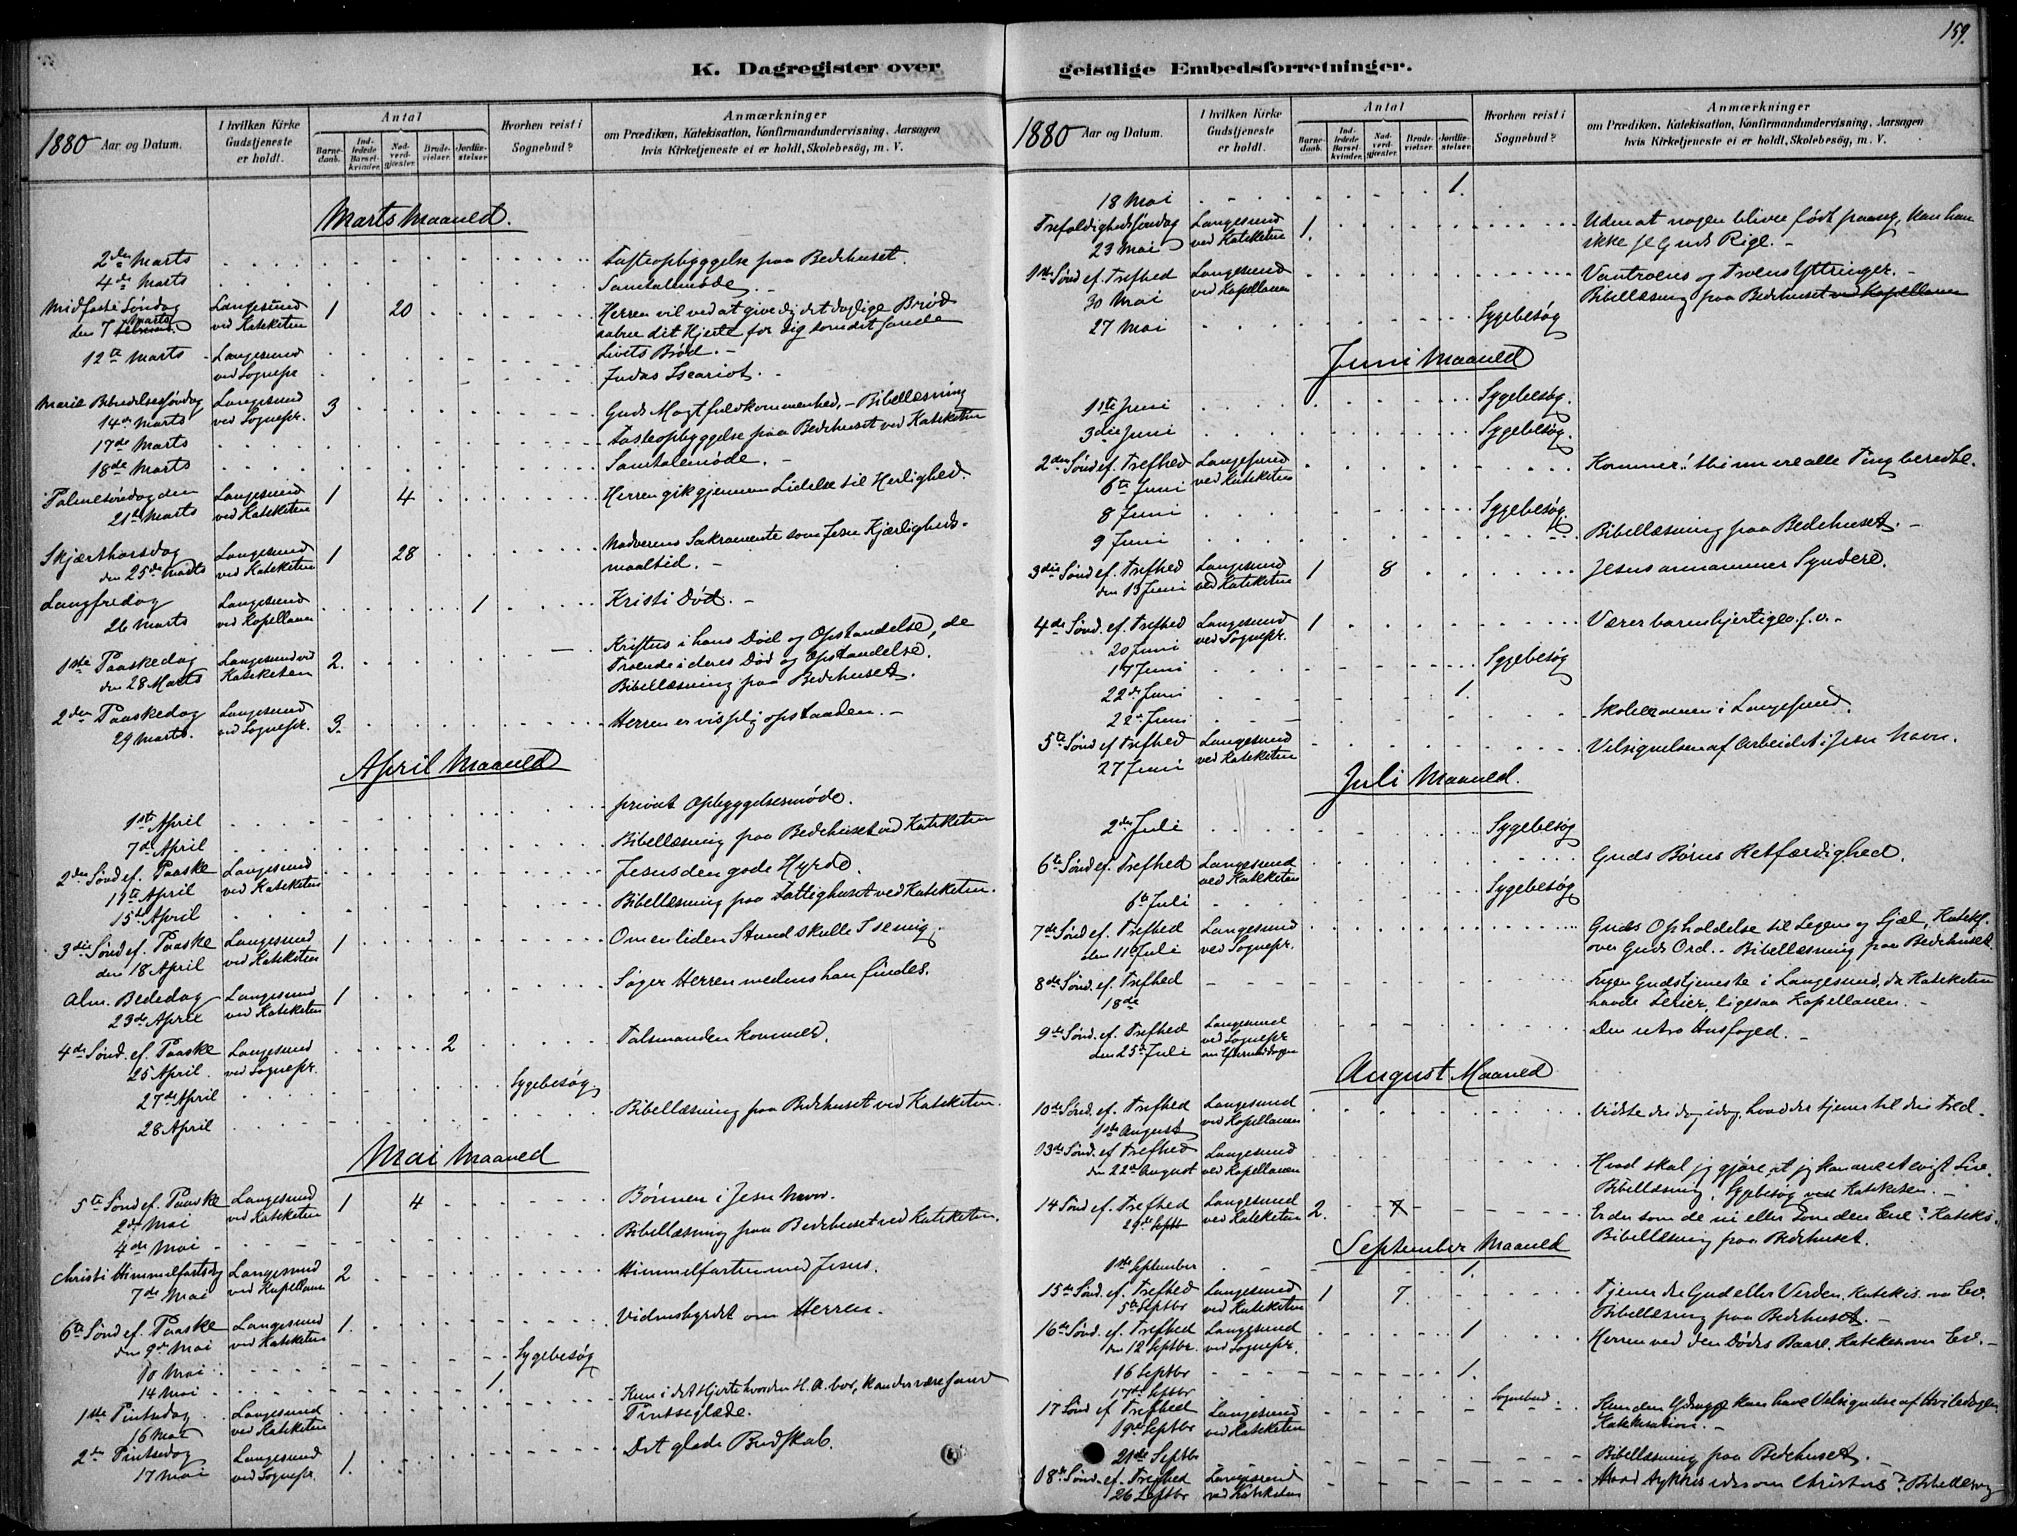 159.
K. Dagregister over
1880 Aar og Datum.
I hvilken Kirke Gudstjeneste er holdt.
Antal
Barnedaab.
Indledede Barselkvinder.
Nadverdgjester.
Brudevielser.
Jordfæstelser.
Hvorhen reist i Sognebud?
Anmærkninger
om Prædiken, Katekisation, Konfirmandundervisning, Aarsagen
hvis Kirketjeneste ei er holdt, Skolebesög, m. V.
Marts Maaned.
2den Marts Fasteopbyggelse paa Bedehuset.
4de Marts Samtalemøde. -
Midfaste Søndag Langesund 1 20 Herren vil ved at give dig det daglige Brød
den 7 Marts ved Kateketen aabne dit Hjerte for dig som det sande
Livets Brød. -
12te Marts Langesund ved Sognepr. Judas Iscariot. -
Mariæ Bebudelsessøndag Langesund 3 Guds Magtfuldkommenhed. - Bibellæsning
14de Marts ved Sognepr.
17de Marts Fasteopbyggelse paa Bedehuset ved Kateketen
18de Marts Samtalemøde. -
Palmesøndag den Langesund 1 4 Herren gik gjennem Lidelse til Herlighed.
21de Marts ved Kateketen
Skjærthorsdag Langesund 1 28 Nadverens Sakramente som Jesu Kjærligheds-
den 25de Marts ved Kateketen maaltid. -
Langfredag Langesund 1 Kristi Død. -
26 Marts ved Kapellanen
1ste Paaskedag Langesund ved 2. Kristus i hans Død og Opstandelse, de
den 28 Marts Kateketen Troende i deres Død og Opstandelse.
Bibellæsning paa Bedehuset.
2den Paaskedag Langesund 3. Herren er visselig opstanden. -
29 Marts. ved Sognepr.
April Maaned
1ste April privat Opbyggelsesmøde.
7de April Bibellæsning paa Bedehuset ved Kateketen
2den Sønd ef. Paaske Langesund Jesus den gode Hyrde.
11te April ved Kateketen
15de April Bibellæsning paa Fattighuset ved Kateketen.
3die Sønd ef. Paaske Langesund 1 Om en liden Stund skulle I se mig.
den 18 April ved Kateketen
Alm. Bededag Langesund 1 Søger Herren medens han findes.
23de April ved Kateketen
4de Sønd. ef. Paaske Langesund 2 Talsmanden kommer.
25 April ved Sognepr.
27de April Sygebesøg.
28 April Bibellæsning paa Bedehuset ved Kateketen.
Mai Maaned
5te Sønd ef. Paaske Langesund 1 4 Bønnen i Jesu Navn.
2den Mai ved Kateketen
4de Mai Bibellæsning paa Bedehuset ved Kateketen.
Christi Himmelfartsdag Langesund 2 Himmelfarten med Jesus.
7de Mai ved Kapellanen
6te Sønd ef. Paaske Langesund 1. Vidnesbyrdet om Herren.
den 9de Mai ved Kateketen
10 Mai Sygebesøg
14 Mai 1.
1ste Pintsedag Langesund Kun i det Hjerte hvor den H. A. bor, kan der være sand
16 Mai ved Kateketen Pintseglæde.
2den Pintsedag Langesund 1. Det glade Budskab.
17 Mai ved Sognepr.
geistlige Embedsforretninger.
1880 Aar og Datum.
I hvilken Kirke Gudstjeneste er holdt.
Antal
Barnedaab.
Indledede Barselkvinder.
Nadverdgjester.
Brudevielser.
Jordfæstelser.
Hvorhen reist i Sognebud?
Anmærkninger
om Prædiken, Katekisation, Konfirmandundervisning, Aarsagen
hvis Kirketjeneste ei er holdt, Skolebesög, m. V.
18 Mai 1.
Trefoldighedssøndag Langesund 1. Uden at nogen bliver født paany, kan han
23 Mai ved Kateketen ikke se Guds Rige. -
1ste Sønd ef. Trefhed Langesund Vantroens og Troens Yttringer. -
30 Mai ved Kapellanen Bibellæsning paa Bedehuset ved Kapellanen
27 Mai Sygebesøg
Juni Maaned
1ste Juni Sygebesøg.
3die Juni Sygebesøg.
2den Sønd ef. Trefhed Langesund Kommer! thi nu ere alle Ting beredte.
6te Juni ved Kateketen
8 Juni Sygebesøg
9 Juni Bibellæsning paa Bedehuset. -
3die Sønd ef. Trefhed Langesund 1 8 Jesus annammer Syndere.
den 13 Juni ved Kateketen
4de Sønd. ef. Trefhed Langesund 1 Værer barmhjertige o.s.v. -
20 Juni ved Sognepr.
17 Juni Sygebesøg
22de Juni 1.
22de Juni Skoleexamen i Langesund.
5te Sønd ef. Trefhed Langesund Velsignelsen af Arbeidet i Jesu Navn.
27 Juni ved Kateketen
Juli Maaned.
2den Juli Sygebesøg
6te Sønd ef. Trefhed Langesund Guds Børns Retfærdighed.
ved Kateketen
6te Juli Sygebesøg
7de Sønd ef. Trefhed Langesund Guds Opholdelse til Legem og Sjæl, Katekis.
den 11te Juli ved Sognepr. over Guds Ord. - Bibellæsning paa Bedehuset.
8de Sønd. ef. Trefhed Ingen Gudstjeneste i Langesund, da Kateketen
18de havde Ferier, ligesaa Kapellanen. -
9de Sønd. ef. Trefhed Langesund ved Sognepr. om Eftermiddagen Den utro Husfoged. -
den 25de Juli
August Maaned
10de Sønd. ef. Trefhed Langesund Vidste du dog idag, hvad der tjener til din Fred.
1ste August ved Kapellanen
13de Sønd. ef Trefhed Langesund Hvad skal jeg gjøre at jeg kan arve et evigt Liv.
den 22de August ved Kapellanen Bibellæsning, Sygebesøg ved Kateketen. -
14 Sønd ef. Trefhed Langesund 2. 7 Er du som de ni eller som den Ene? Katekis.
29de Septbr ved Kateketen Bibellæsning paa Bedehuset.
September Maaned
1ste September 1.
15de Sønd. ef. Trefhed Langesund 1 7. Tjener du Gud eller Verden. Katekis. over Ev.
5te Septbr ved Kateketen Bibellæsning paa Bedehuset. -
16de Sønd. ef. Trefhed Langesund 1 Herren ved den Dødes Baare. Katekis over Ev. -
den 12 Septbr. ved Sognepr.
16 Septbr 1.
17de Septbr Sognebud
17 Sønd ef Trefhed Langesund Kun den Gudfrygt. kan have Velsignelse af Hviledagen
19de Septbr ved Kateketen Katekisation. -
21de Septbr Bibellæsning paa Bedehuset. -
18de Sønd. ef. Trefhed Langesund Hvad tykkes eder om Christus? Bibellæsning
26 Septbr ved Kateketen